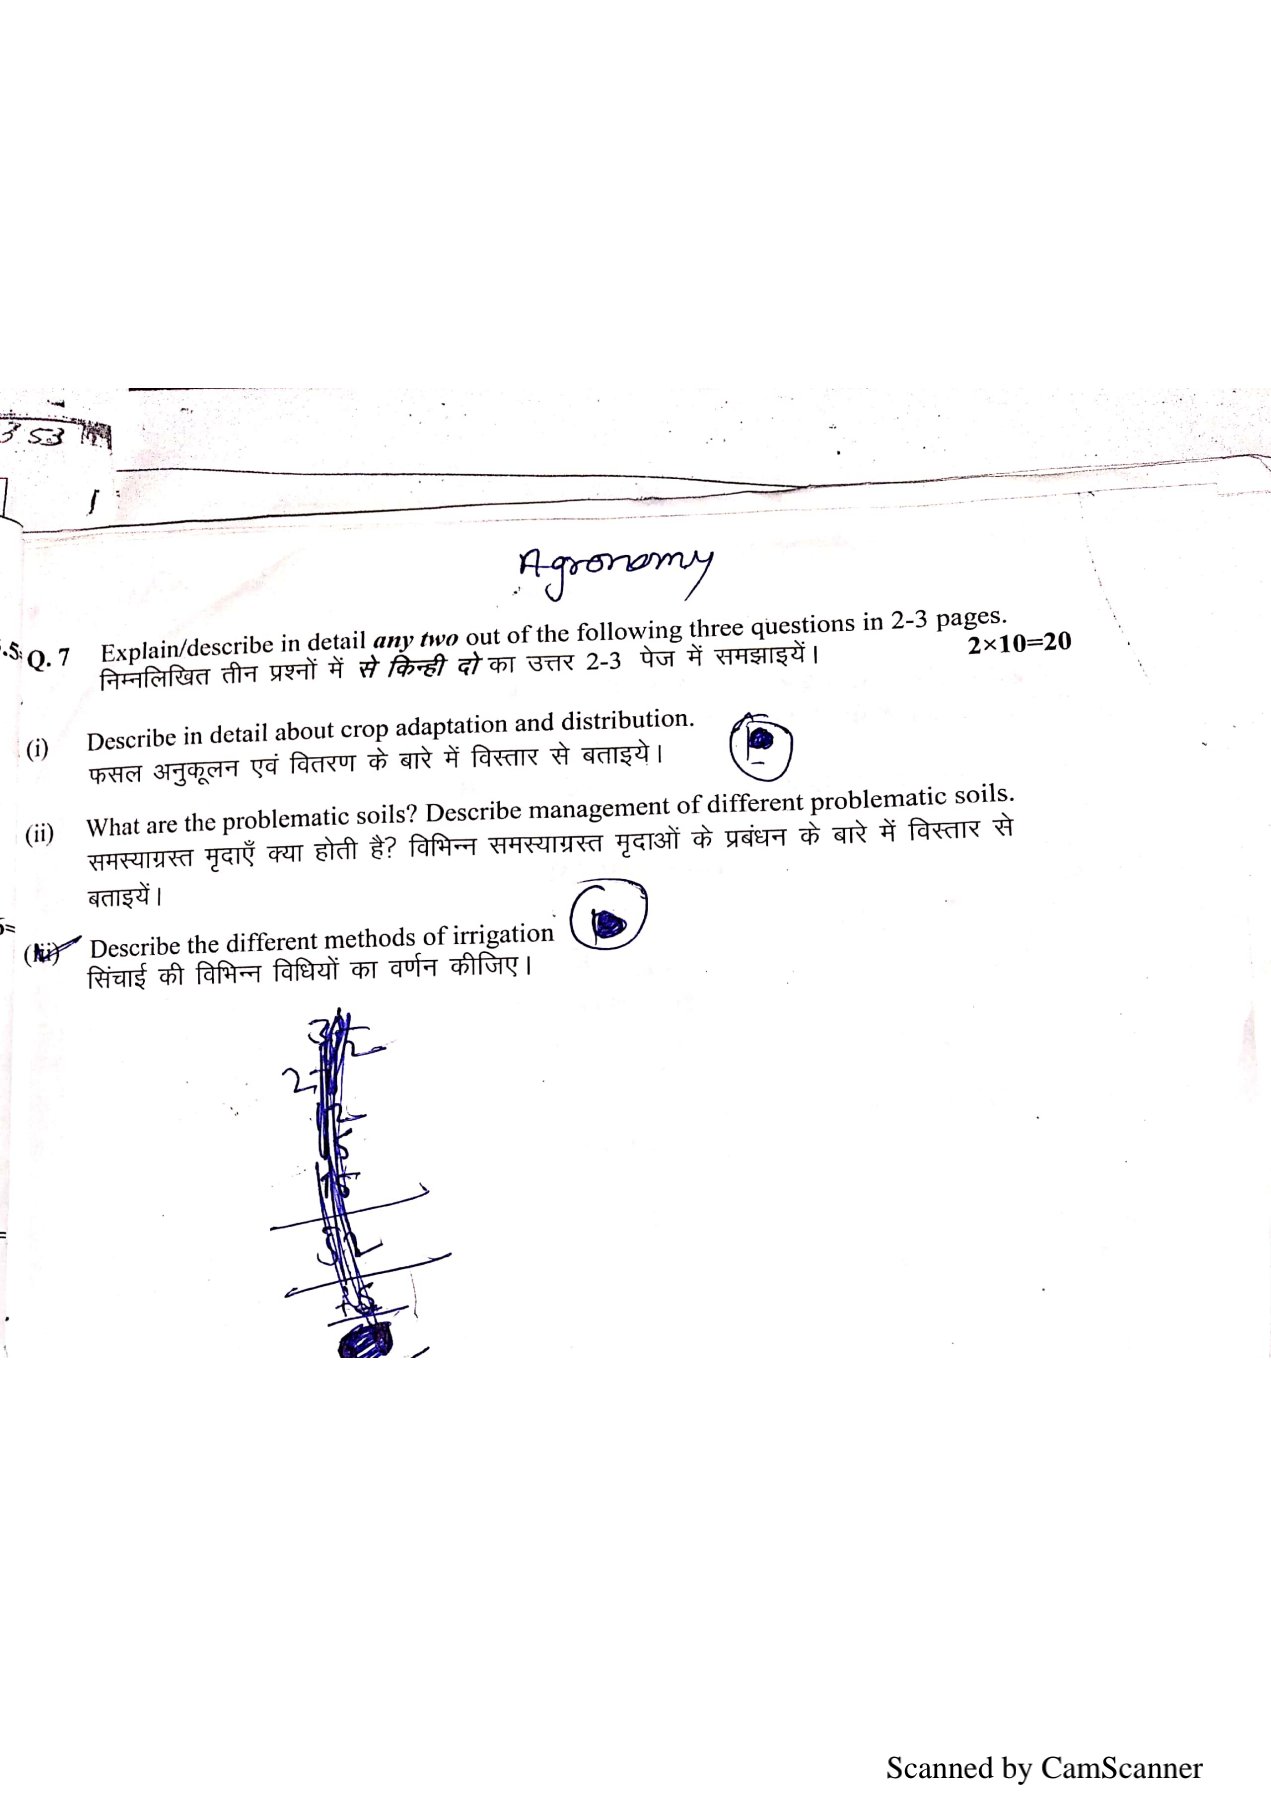 353
Agronomy
Q. 7 Explain/describe in detail any two out of the following three questions in 2-3 pages.
2×10=20
निम्नलिखित तीन प्रश्नों में से किन्ही दो का उत्तर 2-3 पेज में समझाइयें।
(i) Describe in detail about crop adaptation and distribution.
फसल अनुकूलन एवं वितरण के बारे में विस्तार से बताइये।
(ii) What are the problematic soils? Describe management of different problematic soils.
समस्याग्रस्त मृदाएँ क्या होती है? विभिन्न समस्याग्रस्त मृदाओं के प्रबंधन के बारे में विस्तार से
बताइयें।
Describe the different methods of irrigation
सिंचाई की विभिन्न विधियों का वर्णन कीजिए।
Scanned by CamScanner